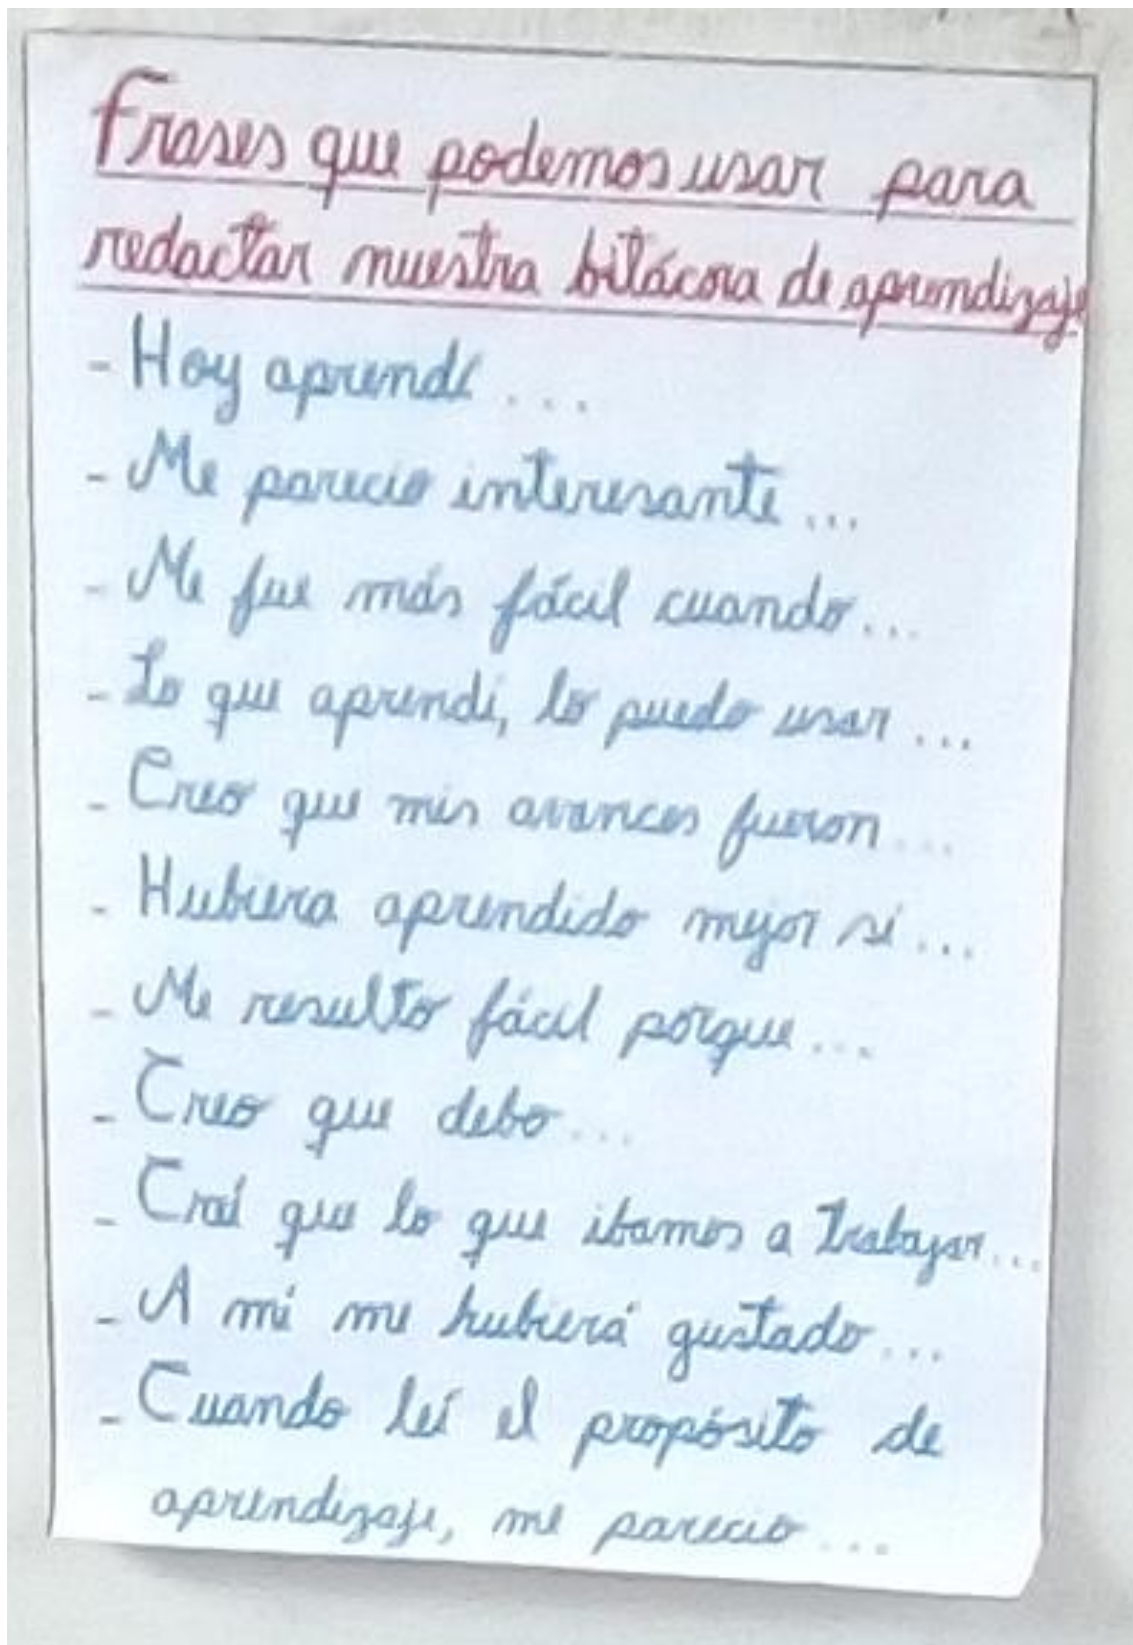 Frases que podemos usar para
redactar nuestra bitácora de aprendizaje
- Hoy aprendí ...
- Me parecio interesante ...
- Me fue más fácil cuando ...
- Lo que aprendi, lo puedo usar ...
- Creo que mis avances fueron ...
- Hubiera aprendido mejor si ...
- Me resulto fácil porque ...
- Creo que debo ...
- Creí que lo que ibamos a trabajar ...
- A mí me hubierá gustado ...
- Cuando leí el propósito de
aprendizaje, me parecio ...